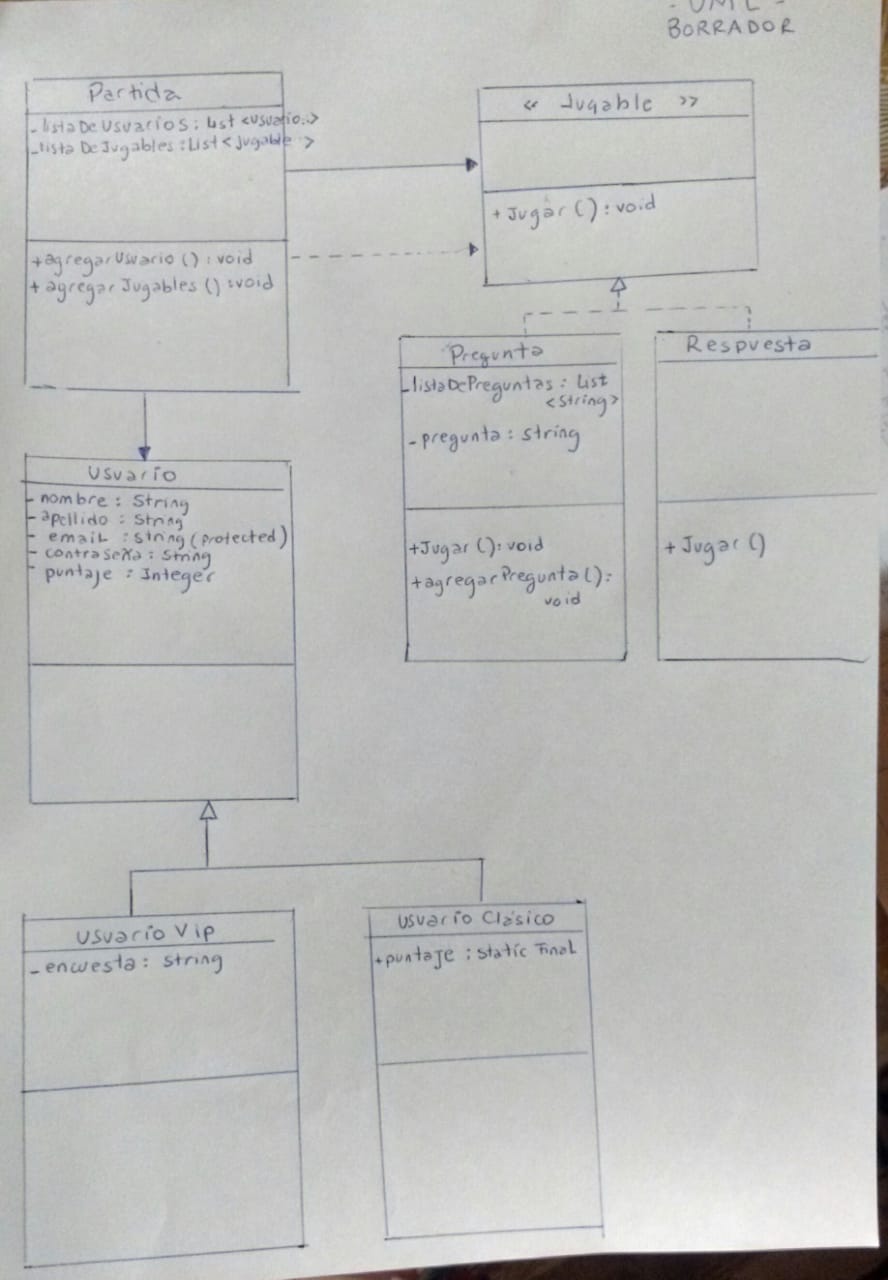 - UML -
BORRADOR
Partida
- listaDeUsuarios : List <Usuario..>
- lista DeJugables : List < jugable ..>
+ agregarUsuario () : void
+ agregar Jugables () : void
<< Jugable >>
+ Jugar () : void
Pregunta
- listaDePreguntas : List
<String>
- pregunta : String
+ Jugar () : void
+ agregarPregunta () :
void
Respuesta
+ Jugar ()
Usuario
- nombre : String
- apellido : String
- email : String (protected)
- contraseña : String
- puntaje : Integer
Usuario Vip
- encuesta : String
Usuario Clásico
+ puntaje : Static Final